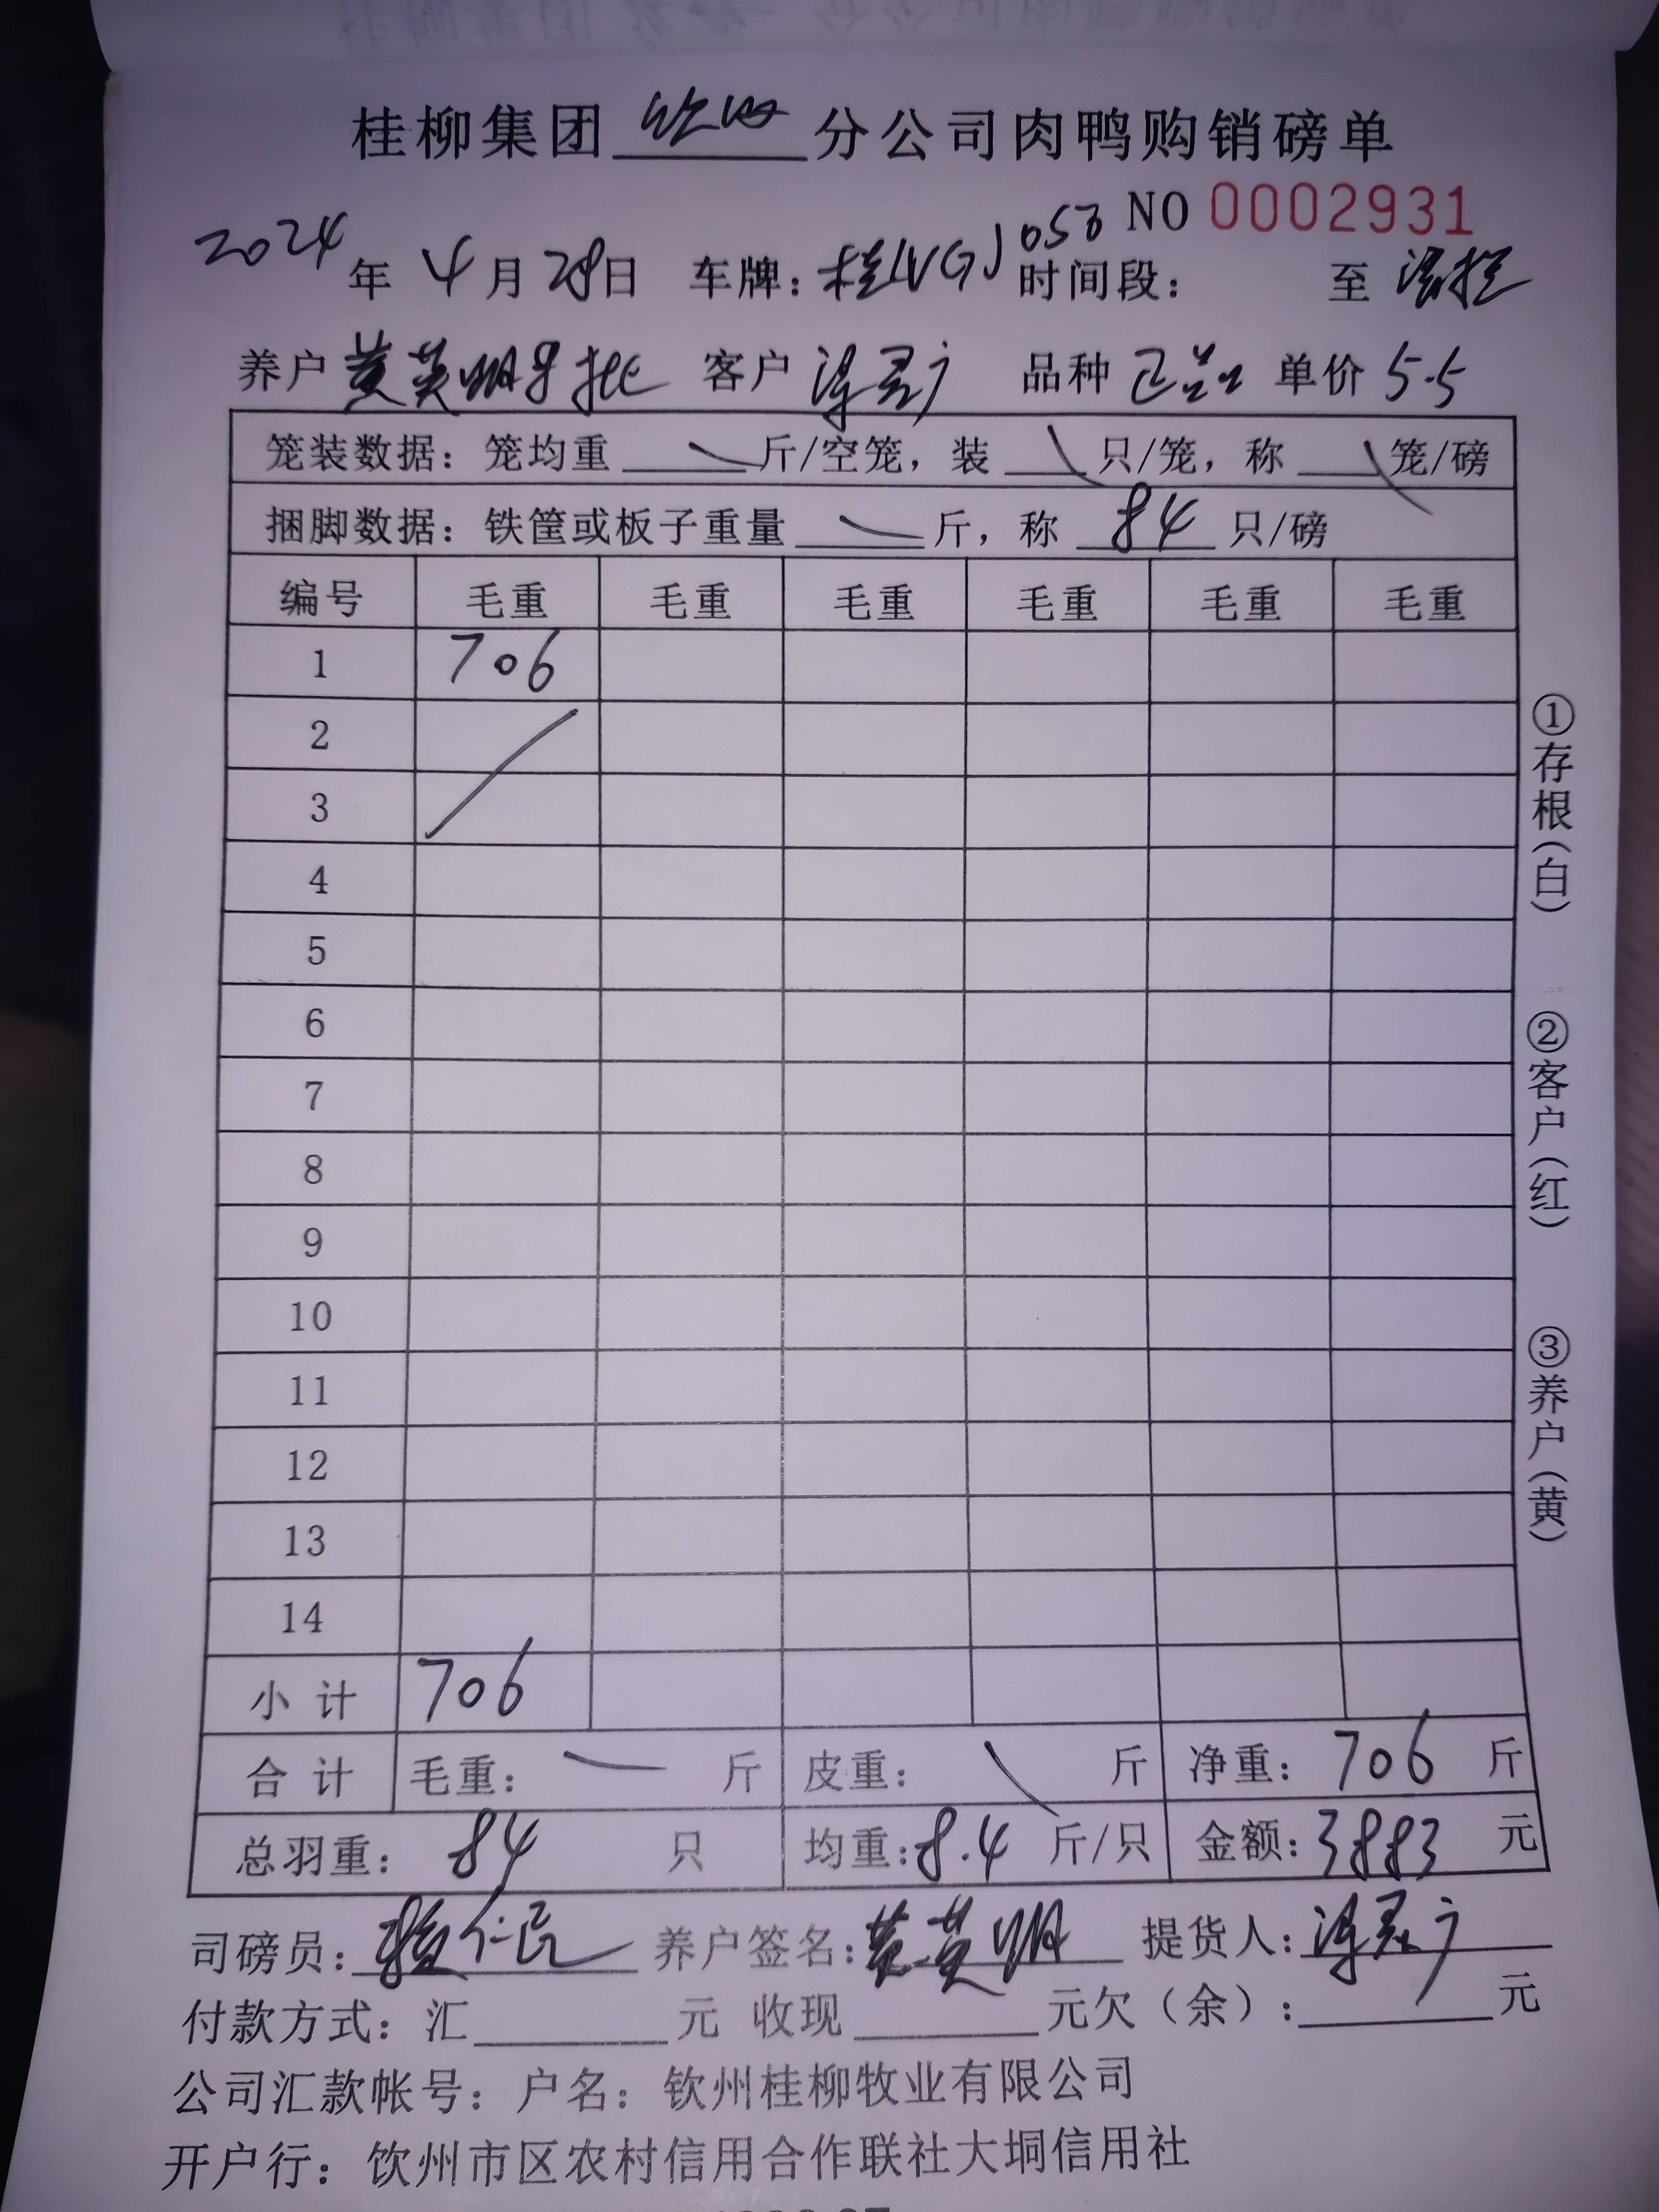 桂柳集团 钦州 分公司肉鸭购销磅单
NO 0002931
2024年 4月28日 车牌: 时间段: 至
养户 黄英明 客户 品种 正品 单价 5.5
笼装数据: 笼均重 斤/空笼, 装 只/笼, 称 笼/磅
捆脚数据: 铁筐或板子重量 斤, 称 84 只/磅
编号 毛重 毛重 毛重 毛重 毛重 毛重
1 706
2
3
4
5
6
7
8
9
10
11
12
13
14
小计 706
合计 毛重: 斤 皮重: 斤 净重: 706 斤
总羽重: 84 只 均重: 8.4 斤/只 金额: 3883 元
司磅员: 养户签名: 黄英明 提货人:
付款方式: 汇 元 收现 元欠(余): 元
公司汇款帐号: 户名: 钦州桂柳牧业有限公司
开户行: 钦州市区农村信用合作联社大垌信用社
①存根(白)
②客户(红)
③养户(黄)